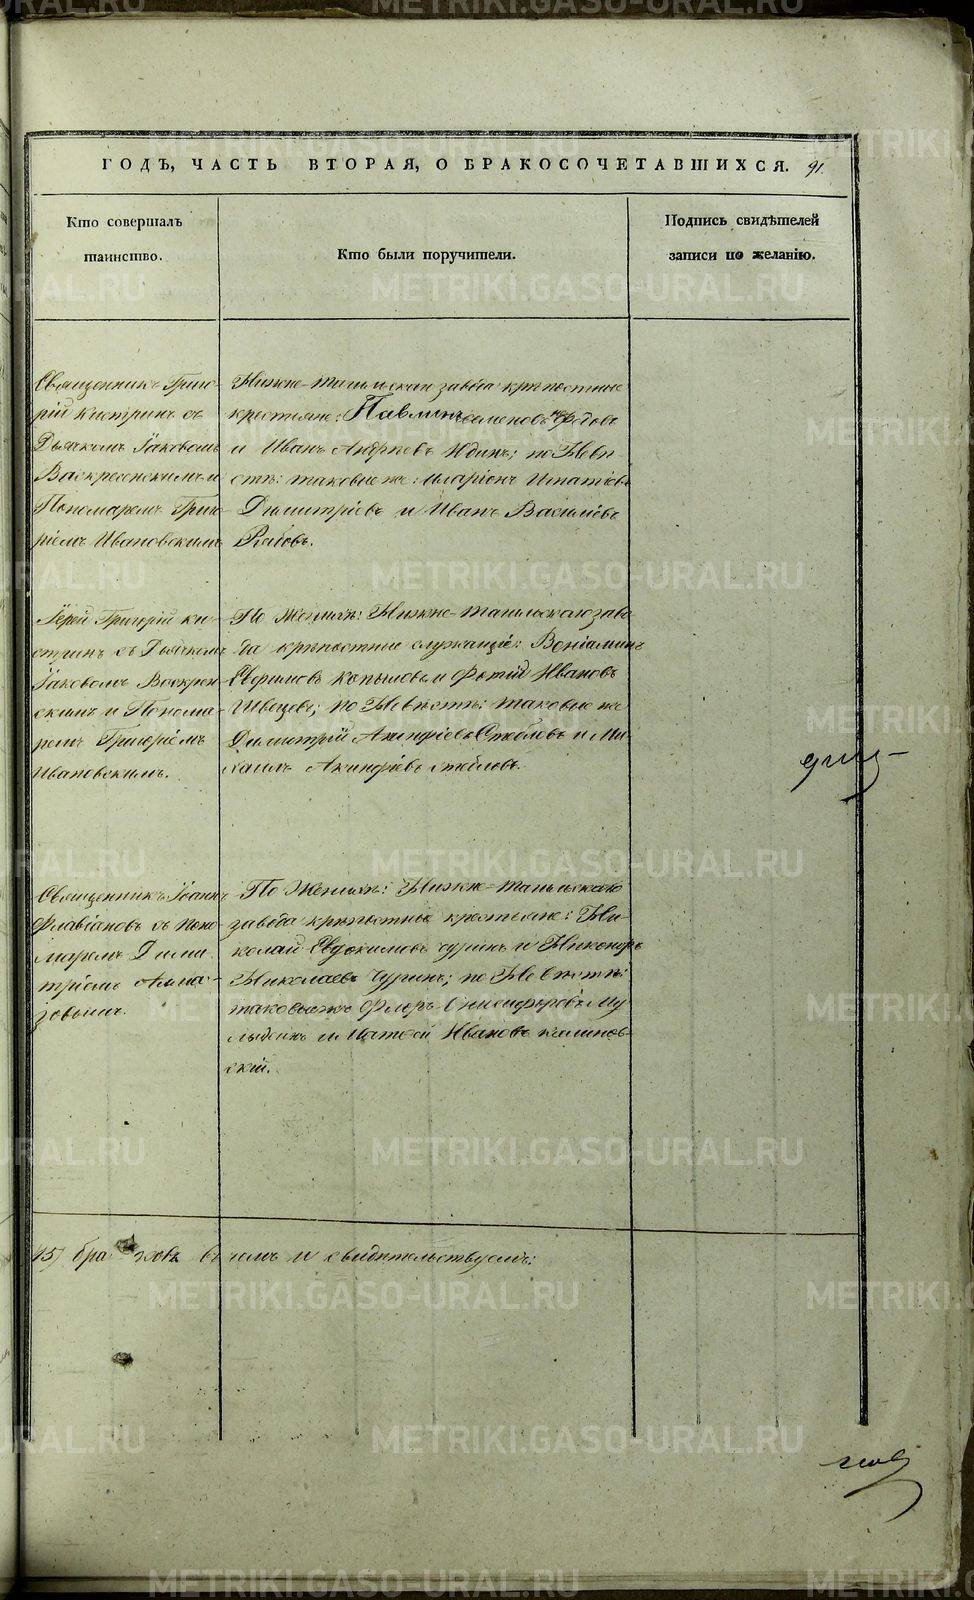 ГОДЪ, ЧАСТЬ ВТОРАЯ, О БРАКОСОЧЕТАВШИХСЯ. 91.
Кто совершалъ
таинство.
Кто были поручители.
Подпись свидѣтелей
записи по желанію.
Священникъ Григо-
рій Кистринъ съ
Дьячкомъ Іаковомъ
Воскресенскимъ и
Пономаремъ Григо-
ріемъ Ивановскимъ
Нижне-тагильскаго завода крѣпостные
крестьяне: Павлинъ
и Иванъ Андреевъ Юдинъ; по Невѣ-
стѣ: таковые же: Иларіонъ Игнатіевъ
Димитріевъ и Иванъ Василіевъ
Рябовъ.
Іерей Григорій Ки-
стринъ съ Дьячкомъ
Іаковомъ Воскресен-
скимъ и Понома-
ремъ Григоріемъ
Ивановскимъ.
По Женихѣ: Нижне-тагильскаго заво-
да крѣпостные служащіе: Веніаминъ
Ефимовъ Копыловъ и Фотій Ивановъ
Швецовъ; по Невѣстѣ: таковые же
Димитрій Акинфіевъ Стобловъ и Ми-
хаилъ Акинфіевъ Стобловъ.
Священникъ Іоаннъ
Флавіановъ съ Поно-
маремъ Дими-
тріемъ Алма-
зовымъ.
По Женихѣ: Нижне-тагильскаго
завода крѣпостные крестьяне: Ни-
колай Евдокимовъ Чуринъ и Никаноръ
Николаевъ Чуринъ; по Невѣстѣ:
таковые же Флоръ Никифоровъ
и Матвей Ивановъ Калинов-
скій.
15) бра ковъ въ немъ и свидѣтельствуемъ:
METRIKI.GASO-URAL.RU